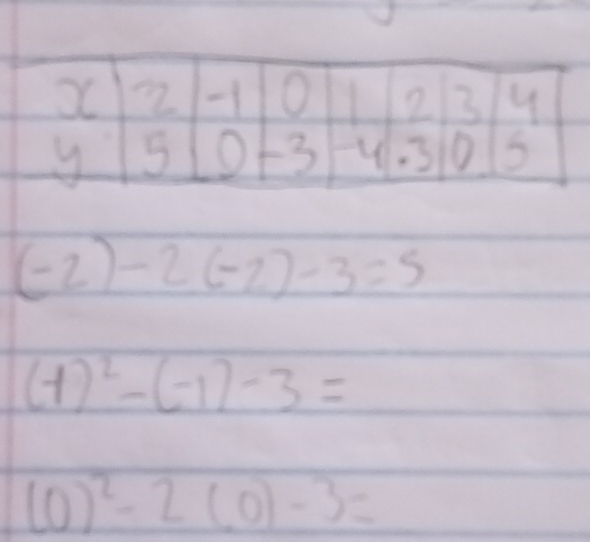 x 2 -1 0 1 2 3 4
y 5 0 -3 -4 -3 0 5
(-2) - 2 (-2) - 3 = 5
(-1)² - (-1) - 3 =
(0)² - 2 (0) - 3 =